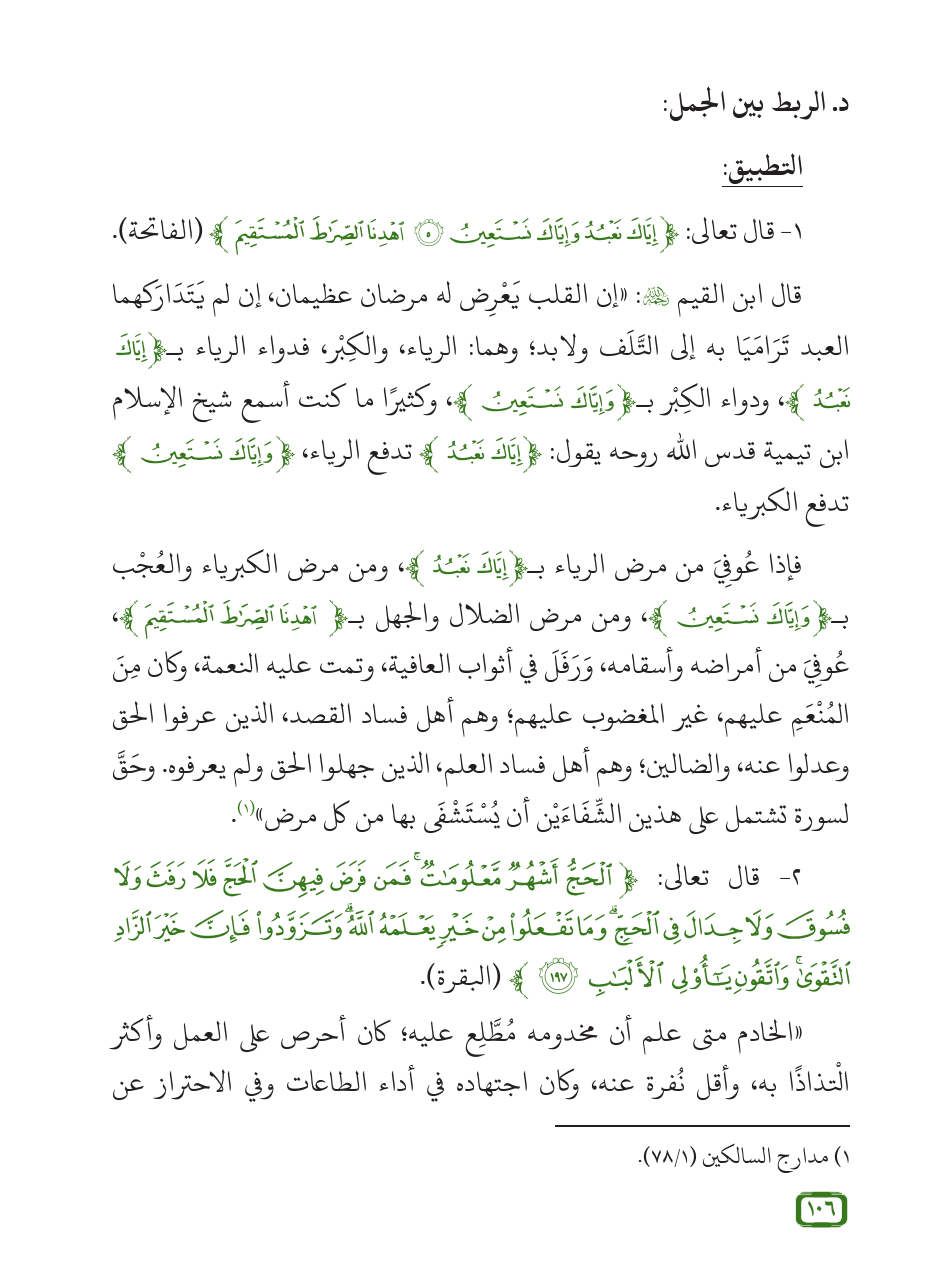 د. الربط بين الجمل:
التطبيق:
١- قال تعالى: ﴿إِيَّاكَ نَعۡبُدُ وَإِيَّاكَ نَسۡتَعِينُ ۝٥ ٱهۡدِنَا ٱلصِّرَٰطَ ٱلۡمُسۡتَقِيمَ﴾ (الفاتحة).
قال ابن القيم ﵀: «إن القلب يَعْرِض له مرضان عظيمان، إن لم يَتَدَارَكهما
العبد تَرَامَيَا به إلى التَّلَف ولابد؛ وهما: الرياء، والكِبْر، فدواء الرياء بـ﴿إِيَّاكَ
نَعۡبُدُ﴾، ودواء الكِبْر بـ﴿وَإِيَّاكَ نَسۡتَعِينُ﴾، وكثيرًا ما كنت أسمع شيخ الإسلام
ابن تيمية قدس الله روحه يقول: ﴿إِيَّاكَ نَعۡبُدُ﴾ تدفع الرياء، ﴿وَإِيَّاكَ نَسۡتَعِينُ﴾
تدفع الكبرياء.
فإذا عُوفِيَ من مرض الرياء بـ﴿إِيَّاكَ نَعۡبُدُ﴾، ومن مرض الكبرياء والعُجْب
بـ﴿وَإِيَّاكَ نَسۡتَعِينُ﴾، ومن مرض الضلال والجهل بـ﴿ٱهۡدِنَا ٱلصِّرَٰطَ ٱلۡمُسۡتَقِيمَ﴾،
عُوفِيَ من أمراضه وأسقامه، وَرَفَلَ في أثواب العافية، وتمت عليه النعمة، وكان مِنَ
المُنْعَمِ عليهم، غير المغضوب عليهم؛ وهم أهل فساد القصد، الذين عرفوا الحق
وعدلوا عنه، والضالين؛ وهم أهل فساد العلم، الذين جهلوا الحق ولم يعرفوه. وحَقَّ
لسورة تشتمل على هذين الشِّفَاءَيْن أن يُسْتَشْفَى بها من كل مرض»(١).
٢- قال تعالى: ﴿ٱلۡحَجُّ أَشۡهُرٞ مَّعۡلُومَٰتٞۚ فَمَن فَرَضَ فِيهِنَّ ٱلۡحَجَّ فَلَا رَفَثَ وَلَا
فُسُوقَ وَلَا جِدَالَ فِي ٱلۡحَجِّۗ وَمَا تَفۡعَلُواْ مِنۡ خَيۡرٖ يَعۡلَمۡهُ ٱللَّهُۗ وَتَزَوَّدُواْ فَإِنَّ خَيۡرَ ٱلزَّادِ
ٱلتَّقۡوَىٰۚ وَٱتَّقُونِ يَٰٓأُوْلِي ٱلۡأَلۡبَٰبِ ۝١٩٧﴾ (البقرة).
«الخادم متى علم أن مخدومه مُطَّلِع عليه؛ كان أحرص على العمل وأكثر
الْتذاذًا به، وأقل نُفرة عنه، وكان اجتهاده في أداء الطاعات وفي الاحتراز عن
١) مدارج السالكين (٧٨/١).
١٠٦